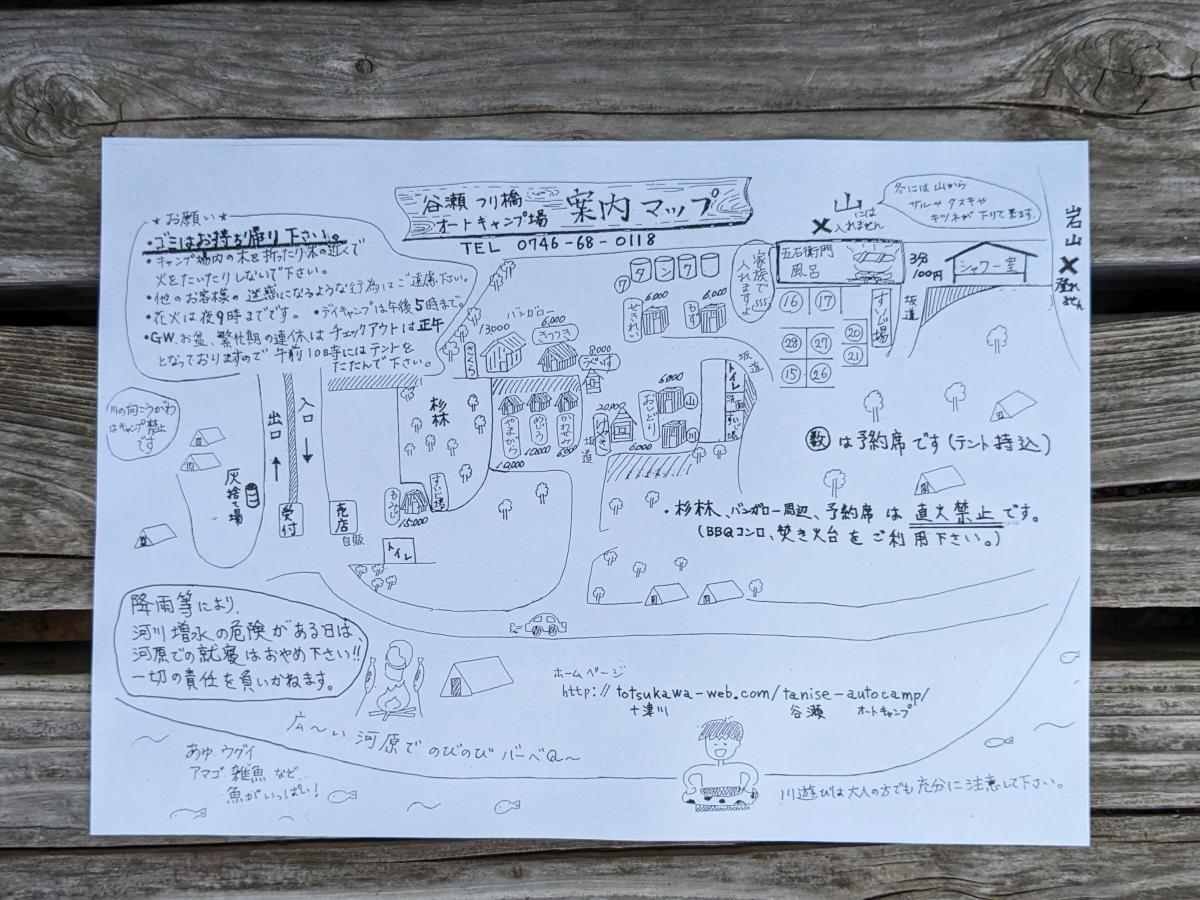 谷瀬つり橋
オートキャンプ場
案内マップ
TEL 0746-68-0118
★お願い★
・ゴミはお持ち帰り下さい。
・キャンプ場内の木を折ったり木の近くで
火をたいたりしないで下さい。
・他のお客様の迷惑になるような行為はご遠慮下さい。
・花火は夜9時までです。・デイキャンプは午後5時まで。
・GW、お盆、繁忙期の連休はチェックアウトは正午
となっておりますので午前10時にはテントを
たたんで下さい。
山には
入れません
冬には山から
サルやタヌキや
キツネが下りて来ます。
岩山
登れません
五右衛門
風呂
3分
100円
シャワー室
家族で
入れますよ
タンク
せきれい
6,000
もず
6,000
16
17
28
27
20
21
15
26
すいじ場
坂道
バンガロー
さくら
13000
きつつき
6,000
うぐいす
8,000
やまがら
10,000
めじろ
10,000
かわせみ
杉林
坂道
20,000
おしどり
6,000
山
川
6,000
坂道
トイレ
洗面
すいじ場
川の向こうがわ
はキャンプ禁止
です
出口
入口
灰捨て場
受付
売店
自販
もみじ
15,000
すいじ場
トイレ
数は予約席です(テント持込)
・杉林、バンガロー周辺、予約席は直火禁止です。
(BBQコンロ、焚き火台をご利用下さい。)
降雨等により、
河川増水の危険がある日は、
河原での就寝はおやめ下さい!!
一切の責任を負いかねます。
ホームページ
http://totsukawa-web.com/tanise-autocamp/
十津川
谷瀬
オートキャンプ
広～い河原でのびのびバーベQ～
あゆ、ウグイ
アマゴ、雑魚など
魚がいっぱい!
川遊びは大人の方でも充分に注意して下さい。